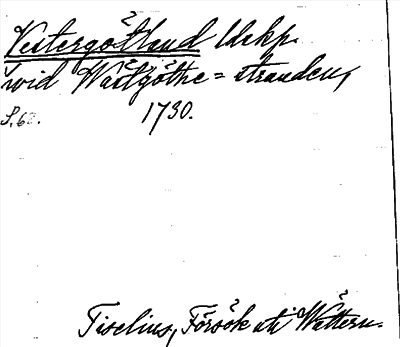 Vestergötland Uckp.
wid Wästgöthe = stranden,
S. 62. 1730.
Tiselius, Försök uti Wättern.